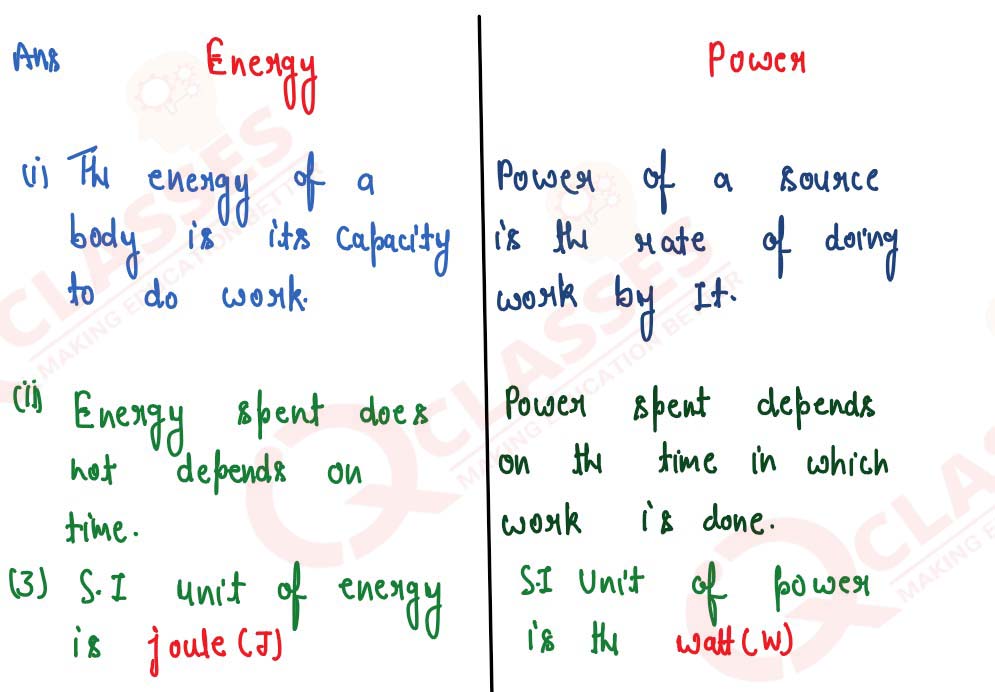 Ans Energy
(i) The energy of a
body is its capacity
to do work.
(ii) Energy spent does
not depends on
time.
(3) S.I unit of energy
is joule (J)
Power
Power of a source
is the rate of doing
work by It.
Power spent depends
on the time in which
work is done.
S.I Unit of power
is the watt (W)
CLASSES
MAKING EDUCATION BETTER
CLASSES
MAKING EDUCATION BETTER
CLAS
MAKING E